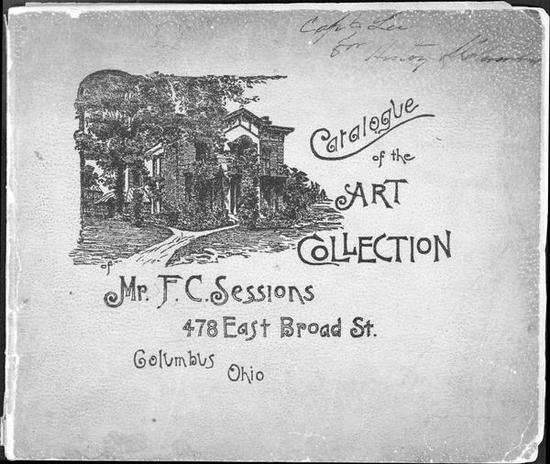 Capt. Lee
for
Catalogue
of the
ART
COLLECTION
of
Mr. F. C. Sessions
478 East Broad St.
Columbus
Ohio